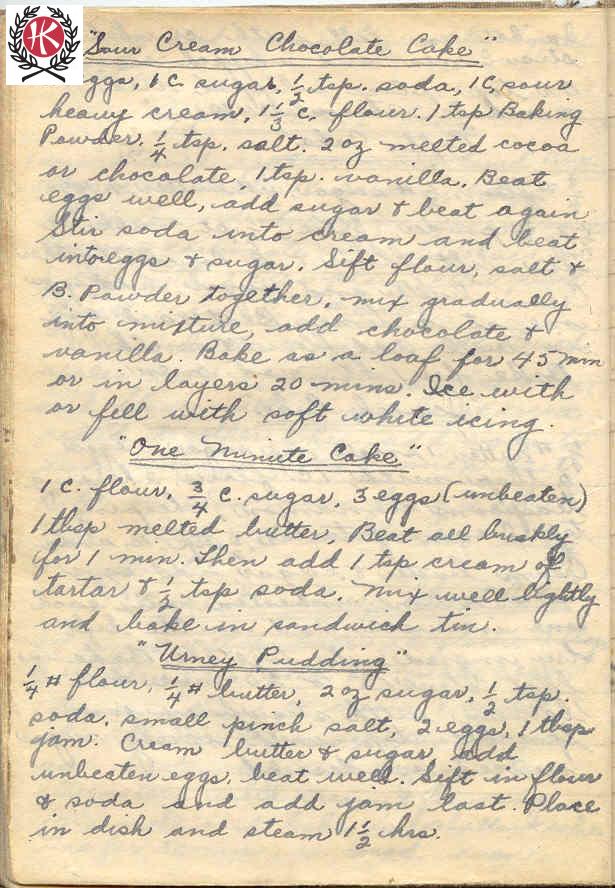 HK
"Sour Cream Chocolate Cake"
eggs, 1 C. sugar, 1/2 tsp. soda, 1 C. sour
heavy cream, 1 1/3 c. flour. 1 tsp Baking
Powder. 1/4 tsp. salt. 2 oz melted cocoa
or chocolate, 1 tsp. vanilla. Beat
eggs well, add sugar & beat again
Stir soda into cream and beat
into eggs & sugar. Sift flour, salt &
B. Powder together, mix gradually
into mixture, add chocolate &
vanilla. Bake as a loaf for 45 min
or in layers 20 mins. Ice with
or fill with soft white icing.
"One Minute Cake"
1 C. flour, 3/4 c. sugar, 3 eggs (unbeaten)
1 tbsp melted butter, Beat all briskly
for 1 min. Then add 1 tsp cream of
tartar & 1/2 tsp soda. Mix well lightly
and bake in sandwich tin.
"Urney Pudding"
1/4 # flour, 1/4 # butter, 2 oz sugar, 1/2 tsp.
soda, small pinch salt, 2 eggs, 1 tbsp
jam. Cream butter & sugar, add
unbeaten eggs, beat well. Sift in flour
& soda and add jam last. Place
in dish and steam 1 1/2 hrs.